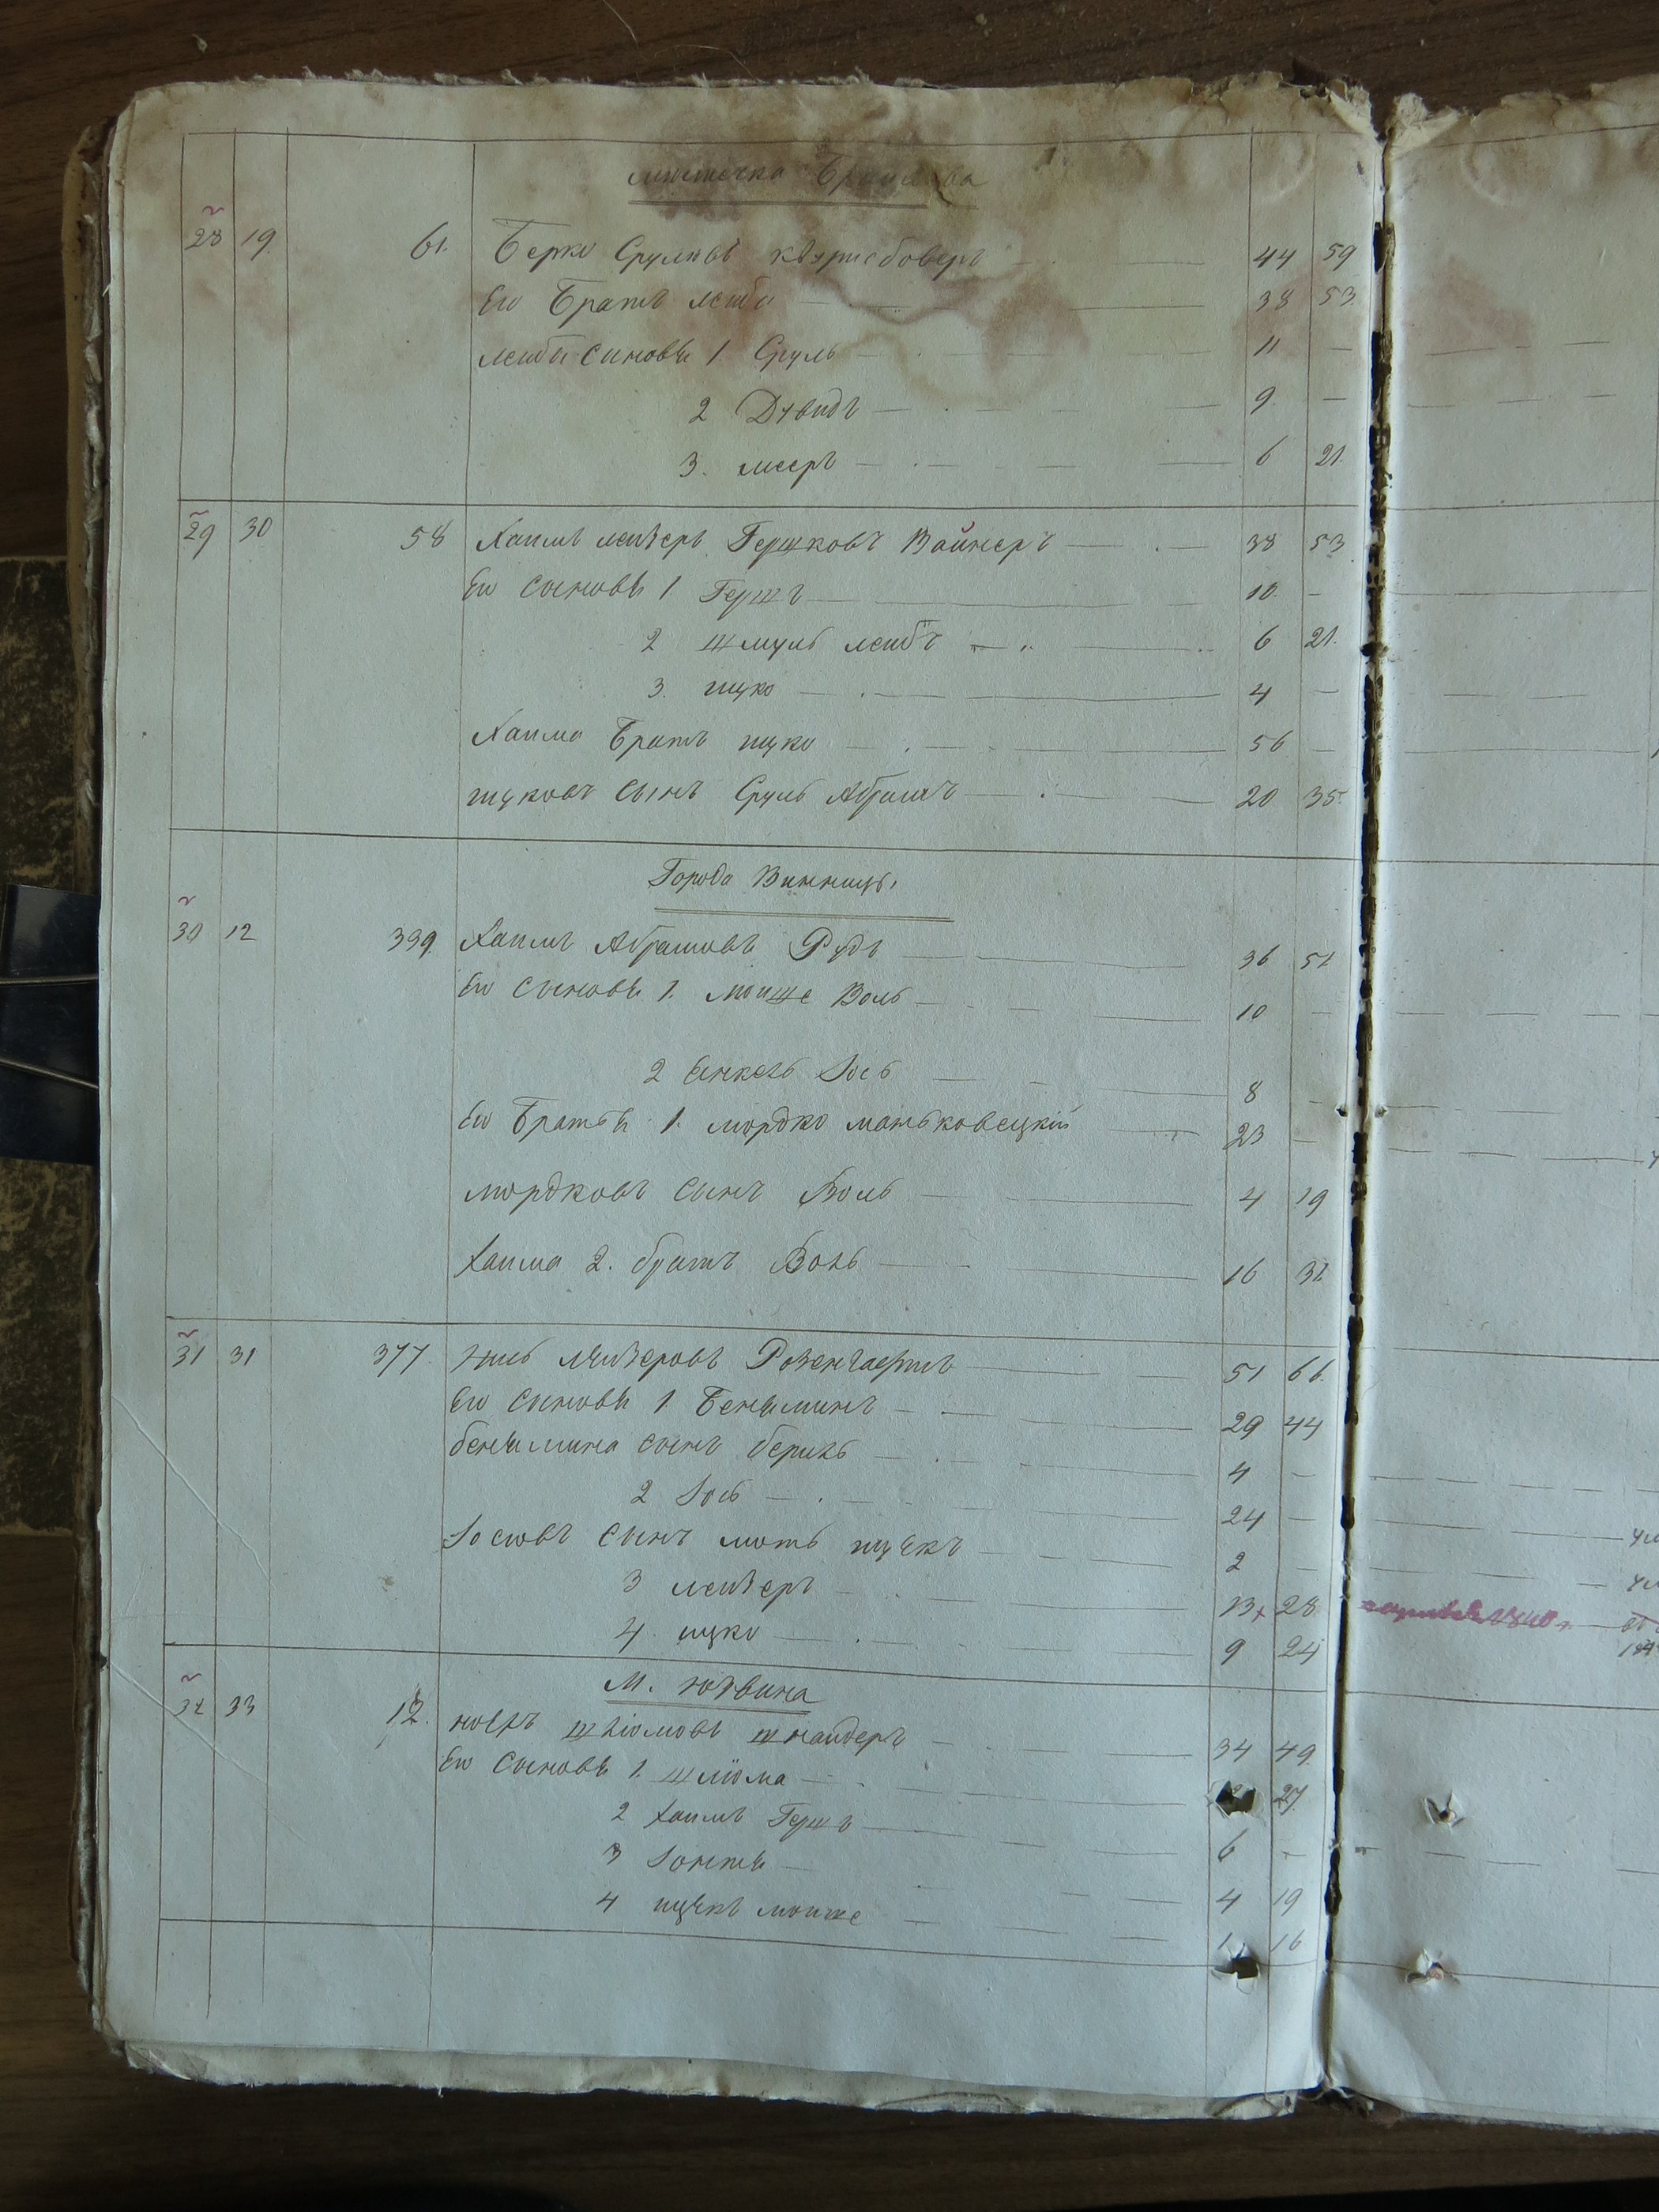 местечка Браилова
28 19. 61. Берко Срулювъ 44 59
Его Братъ Лейба 38 53.
Лейбы Сыновья 1. Сруль 11 —
2 Дувидъ 9. —
3. Мееръ 6 21.
29 30 58 Хаимъ Лейзеръ Гершковъ Вайнеръ 38 53
Его Сыновья 1 Гершъ 10. —
2 Шмуль Лейбъ 6 21.
3. Ицко 4 —
Хаима Братъ Ицко 56 —
Ицковъ Сынъ Сруль Абрамъ 20 35
Города Винницы
30 12 399. Хаимъ Абрамовъ Рудъ 36 51
Его Сыновья 1. Мошше Воль 10 —
2 Янкель Іось 8 —
Его Братья 1. Мордко Маньковецкій 23 —
Мордковъ Сынъ Воль 4 19
Хаима 2. братъ Воль 16 31
31 31 377 Лейзеровъ Розенгафтъ 51 66.
Его Сыновья 1 Беняминъ 29 44
Бенямина сынъ Берить 4 —
2 Іось 24 —
Іосіовъ Сынъ Моть Ицекъ 2 —
3 Лейзеръ 13 28
4. Ицко 9 24
М. Литвина
32 33 12. Шліомовъ Шнайдеръ 34 49.
Его Сыновья 1. Шліома 27.
2 Хаимъ Гершъ 6 —
3 Іонтя 4 19
4 Ицекъ Мошше 1 16